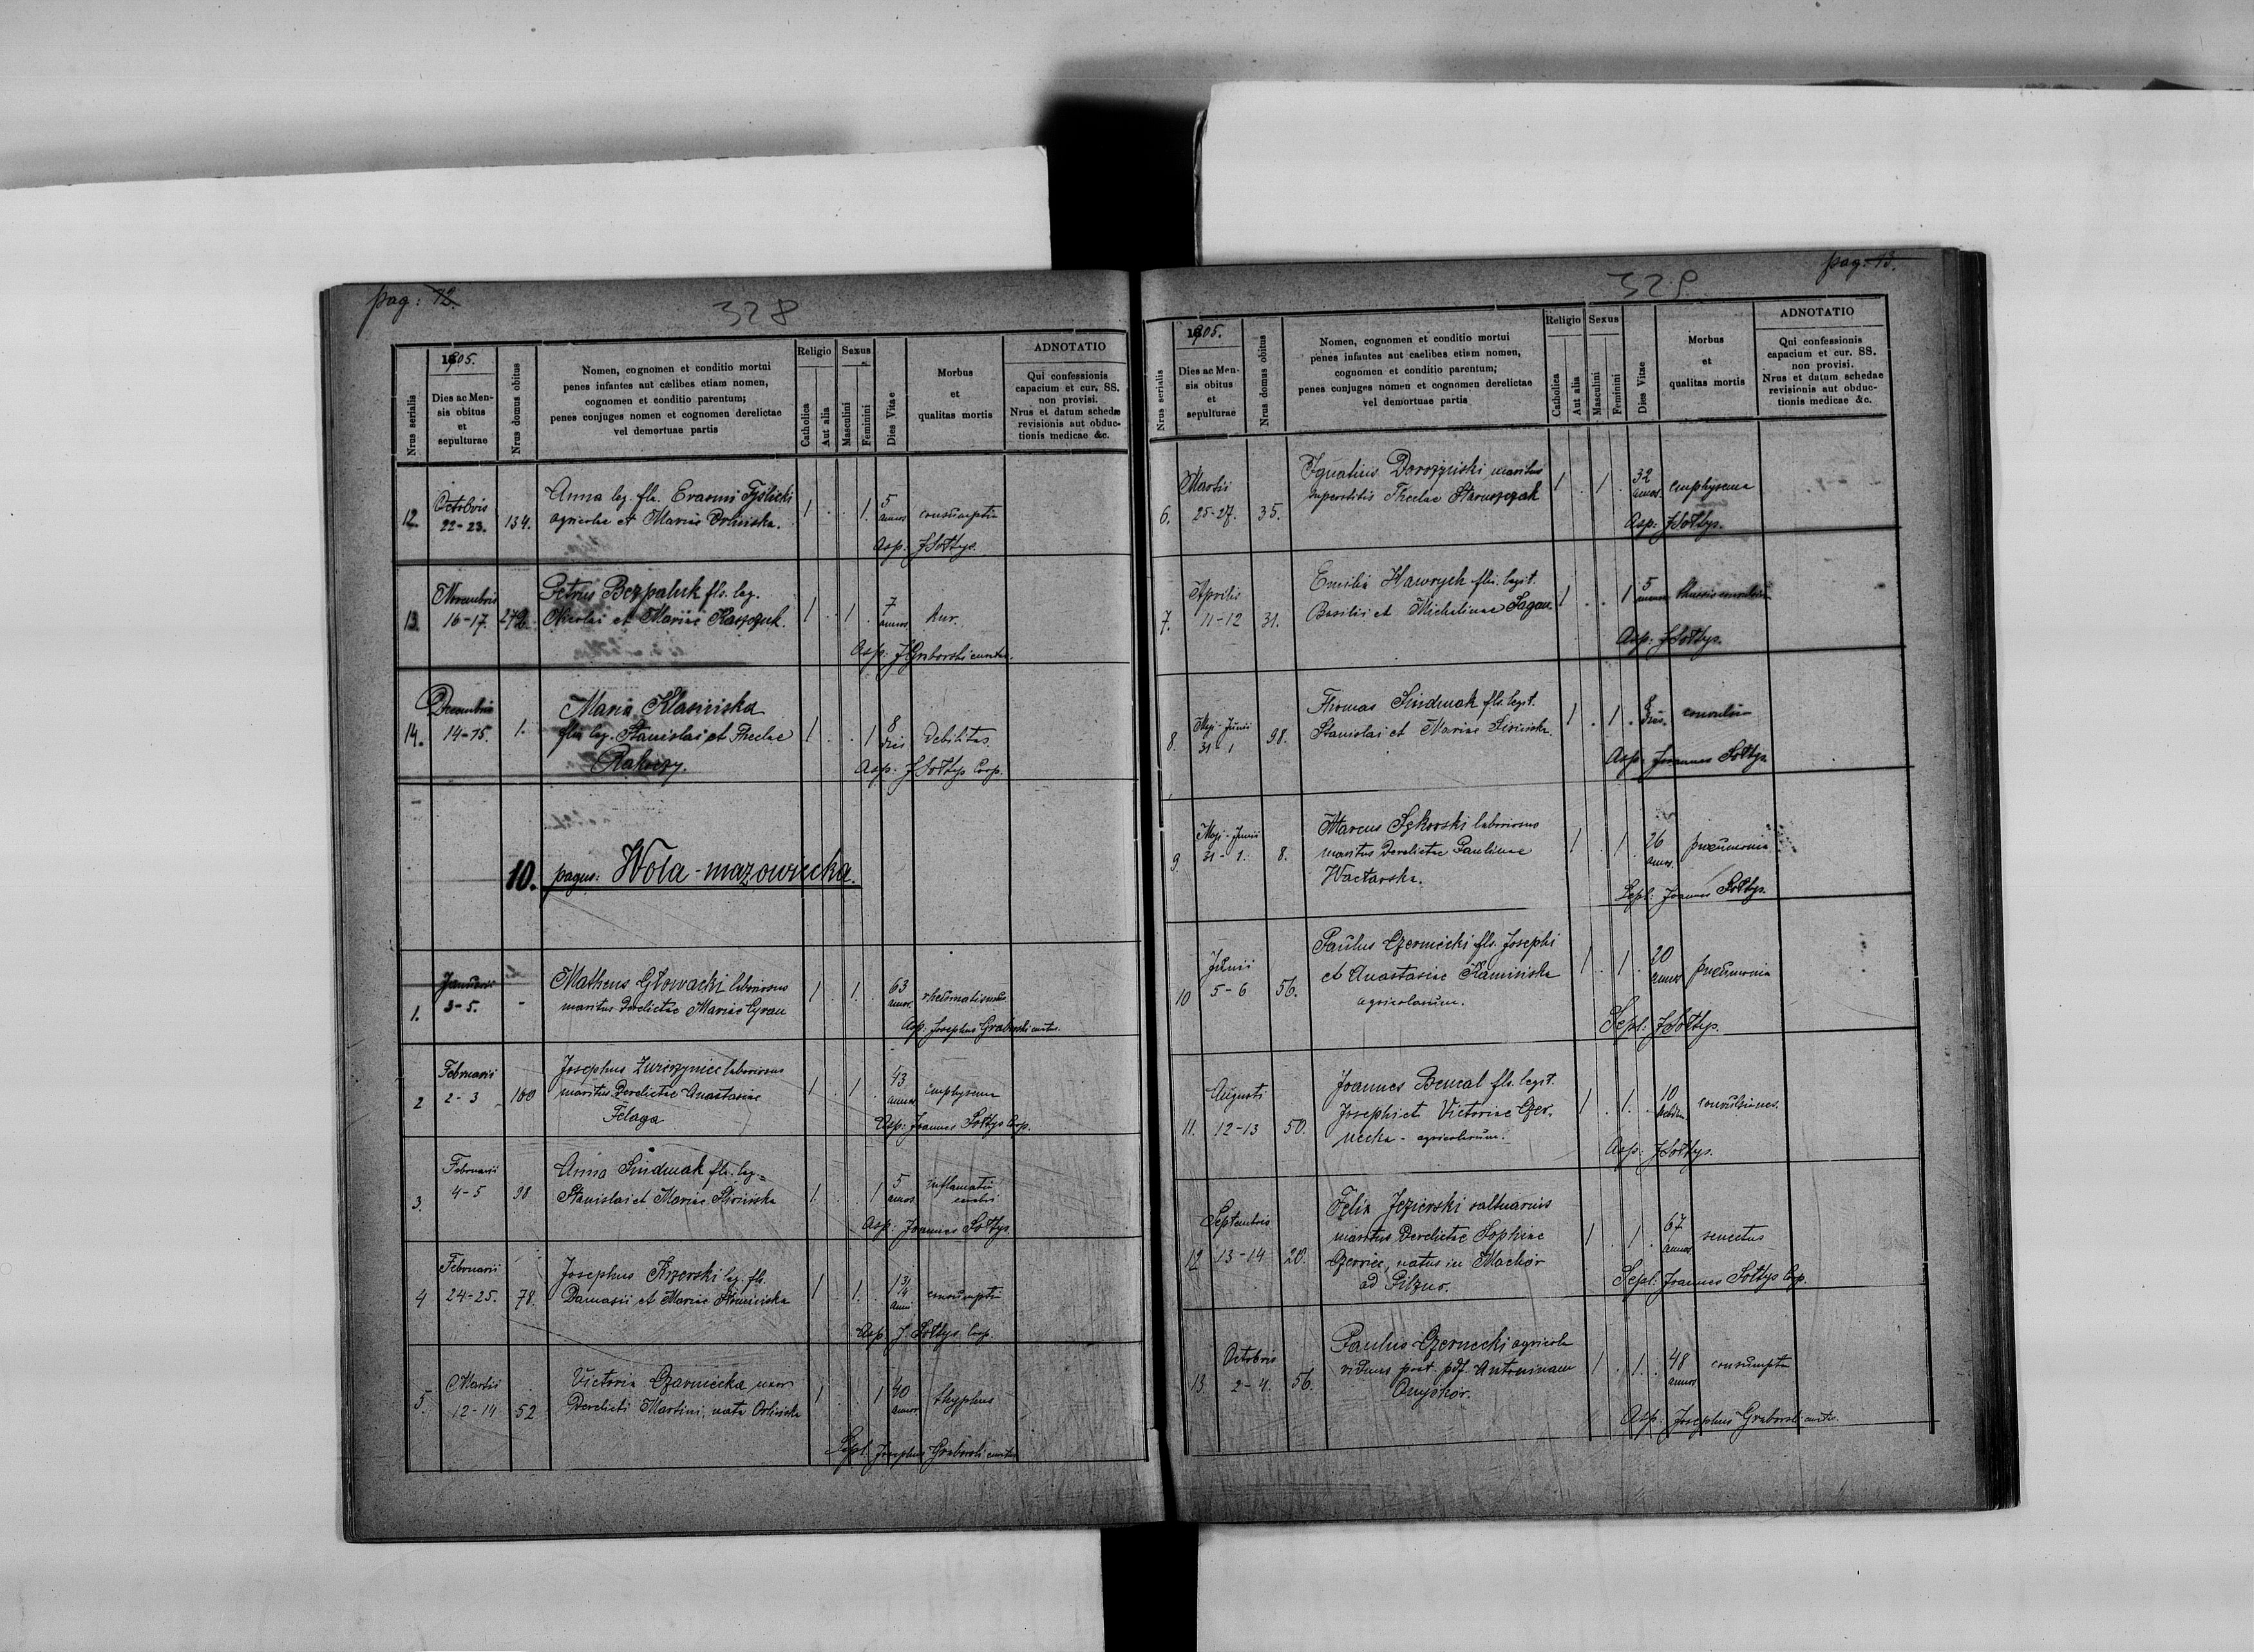 pag: 12.
328
1905.
Nrus serialis
Dies ac Men-
sis obitus
et
sepulturae
Nrus domus obitus
Nomen, cognomen et conditio mortui
penes infantes aut cælibes etiam nomen,
cognomen et conditio parentum;
penes conjuges nomen et cognomen derelictae
vel demortuae partis
Religio
Catholica
Aut alia
Sexus
Masculini
Feminini
Dies Vitae
Morbus
et
qualitas mortis
ADNOTATIO
Qui confessionis
capacium et cur. SS.
non provisi.
Nrus et datum schedæ
revisionis aut obduc-
tionis medicae &c.
12. Octobris 22-23. 134. Anna leg. fla. Erasmi Tyślicki
agricolae et Mariae Orlińska. 1 . . 1. 5 annos consumptio
Asp: J Sołtys.
13. Novembris 16-17. 272. Petrus Bezpaluk fls. leg.
Nicolai et Mariae Kaszczuk. 1 . 1 . 7 annos
Asp: J Grabowski curatus.
14. Decembris 14-15. 1. Maria Klasińska
fla leg. Stanislai et Theclae
Rakoczy. 1 . . 1 8 dies Debilitas
Asp: J Sołtys Coop.
10. pagus: Wola-mazowiecka.
1. Januarii 3-5. - Matheus Głowacki laboriosus
maritus derelictae Mariae Gran 1 . 1. 63 annos rheumatismus
Asp: Josephus Grabowski curatus.
2 Februarii 2-3 100 Josephus laboriosus
maritus Derelictae Anastasiae
Felaga 1 . 1 . 43 annos emphysema
Asp: Joannes Sołtys Coop.
3. Februarii 4-5 98 Anna Sindmak fla. leg=
Stanislai et Mariae 1 . . 1 5 annos inflamatio
Asp: Joannes Sołtys.
4 Februarii 24-25. 78. Josephus leg. fls.
Damasii et Mariae 1 . 1. 1 3/4 anni consumptio
Asp. J. Sołtys Coop.
5. Martii 12-14 52 Victoria Czarniecka uxor
Derelicti Martini, nata Orlińska 1 . . 1 40 annos thyphus
Sepl. Josephus Grabowski curatus
pag: 13.
329
1905.
Nrus serialis
Dies ac Men-
sis obitus
et
sepulturae
Nrus domas obitus
Nomen, cognomen et conditio mortui
penes infantes aut caelibes etiam nomen,
cognomen et conditio parentum;
penes conjuges nomen et cognomen derelictae
vel demortuae partis
Religio
Catholica
Aut alia
Sexus
Masculini
Feminini
Dies Vitae
Morbus
et
qualitas mortis
ADNOTATIO
Qui confessionis
capacium et cur. SS.
non provisi.
Nrus et datum schedae
revisionis aut obduc-
tionis medicae &c.
6. Martii 25-27. 35. Ignatius Dorożyński maritus
superstitis Theclae Staruszczak 1 . 1 . 32 annos emphysema
Asp: J Sołtys.
7. Aprilis 11-12 31. Emilia Hawrych fla. legit.
Basilii et Michelinae Sagan 1 . . 1 5
Asp: J Sołtys.
8. Maji-Junii 31-1 98. Thomas Sindmak fls. legit.
Stanislai et Mariae 1 . 1 . 8 dies.
Asp: Joannes Sołtys
9. Maji-Junii 31-1. 8. Marcus Sękowski laboriosus
maritus Derelictae Paulinae
Wactawska. 1 . 1 . 26 annos. pneumonia
Sepl: Joannes Sołtys.
10 Junii 5-6 56. Paulus Czerniecki fls. Josephi
et Anastasiae Kamińska
agricolarum. 1 . 1 . 20 annos pneumonia
Sepl: J Sołtys.
11. Augusti 12-13 50. Joannes Bencal fls. legit.
Josephi et Victoriae Czer-
necka - agricolarum. 1 . 1. . 10 convulsiones.
Asp: J Sołtys.
12 Septembris 13-14 28. Felix Jezierski saltuarius
maritus Derelictae Sophiae
natus in Machor
ad Pilzno. 1 . 1 . 67 annos senectus
Sepl: Joannes Sołtys Coop.
13. Octobris 2-4. 56. Paulus Czernecki agricola
viduus post pdf. Antoninam
Onyśkov. 1 . 1. . 48 annos consumptio
Asp: Josephus Grabowski curatus.